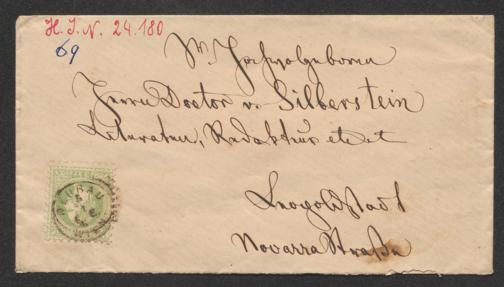 H. I. N. 24.180
69
Sr. Hochwolgeboren
Herrn Doctor v. Silberstein
Literaten, Redakteur etc etc
Leopoldstadt
Novarra Straße
WIEN